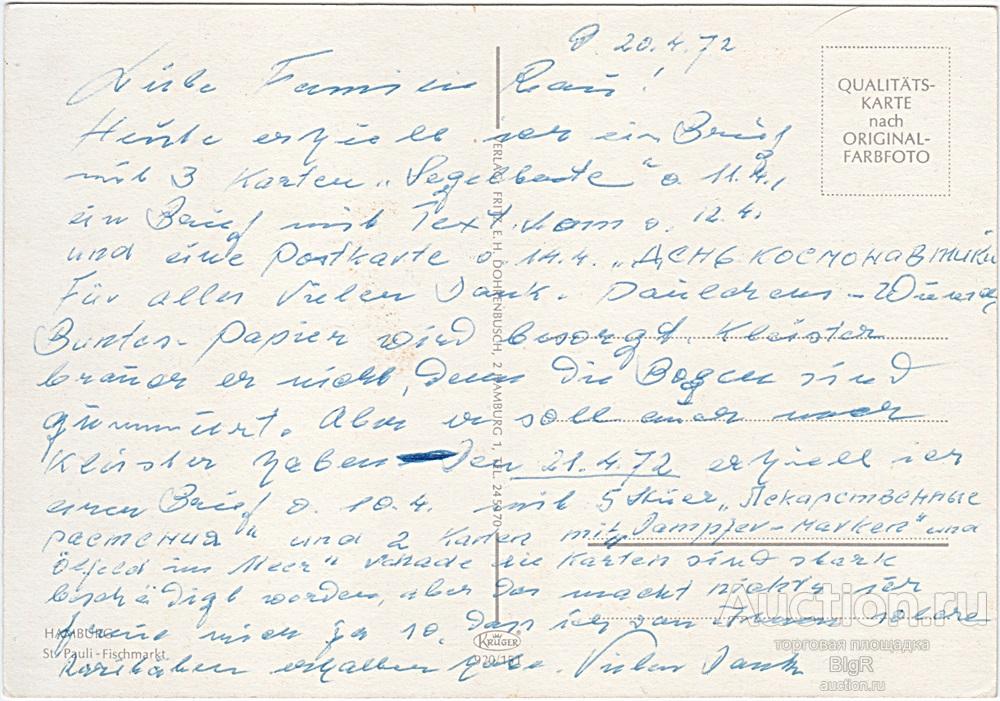 D. 20.4.72
Liebe Familie Rais!
Heute erhielt ich ein Brief
mit 3 Karten „Segelboote" v. 11.4.,
ein Brief mit Text vom v. 12.4.
und eine Postkarte v. 14.4. „ДЕНЬ КОСМОНАВТИКИ
Für alles Vielen Dank. Wunsch
Buntes-Papier wird besorgt. Kleister
braucht er nicht, denn die Bogen sind
gummiert. Aber er soll auch
Kleister haben Den 21.4.72 erhielt ich
einen Brief v. 10.4. mit 5 „Лекарственные
растения" und 2 Karten mit „Dampfer-Marken" und
Ölfeld im Meer" Schade die Karten sind stark
beschädigt worden, aber das macht nichts ich
freue mich ja so, daß ich von Ihnen
erhalten habe. Vielen Dank
QUALITÄTS-
KARTE
nach
ORIGINAL-
FARBFOTO
VERLAG FRITX E. H. DOHRENBUSCH, 2 HAMBURG 1, TEL. 245970
HAMBURG
St. Pauli - Fischmarkt
KRÜGER
920/15
Auction.ru
торговая площадка
BIgR
auction.ru